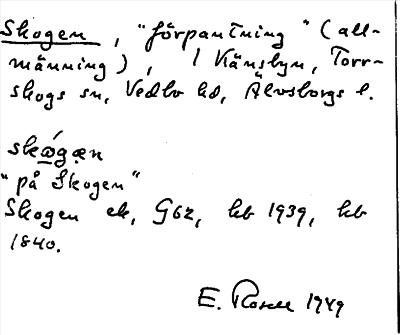 Skogen, "förpantning" (all-
männing), i Känsbyn, Torr-
skogs sn, Vedbo hd, Älvsborgs l.
skὼgæn
"på Skogen"
Skogen ek, G62, hb 1939, kb
1840.
E. Rosell 1949